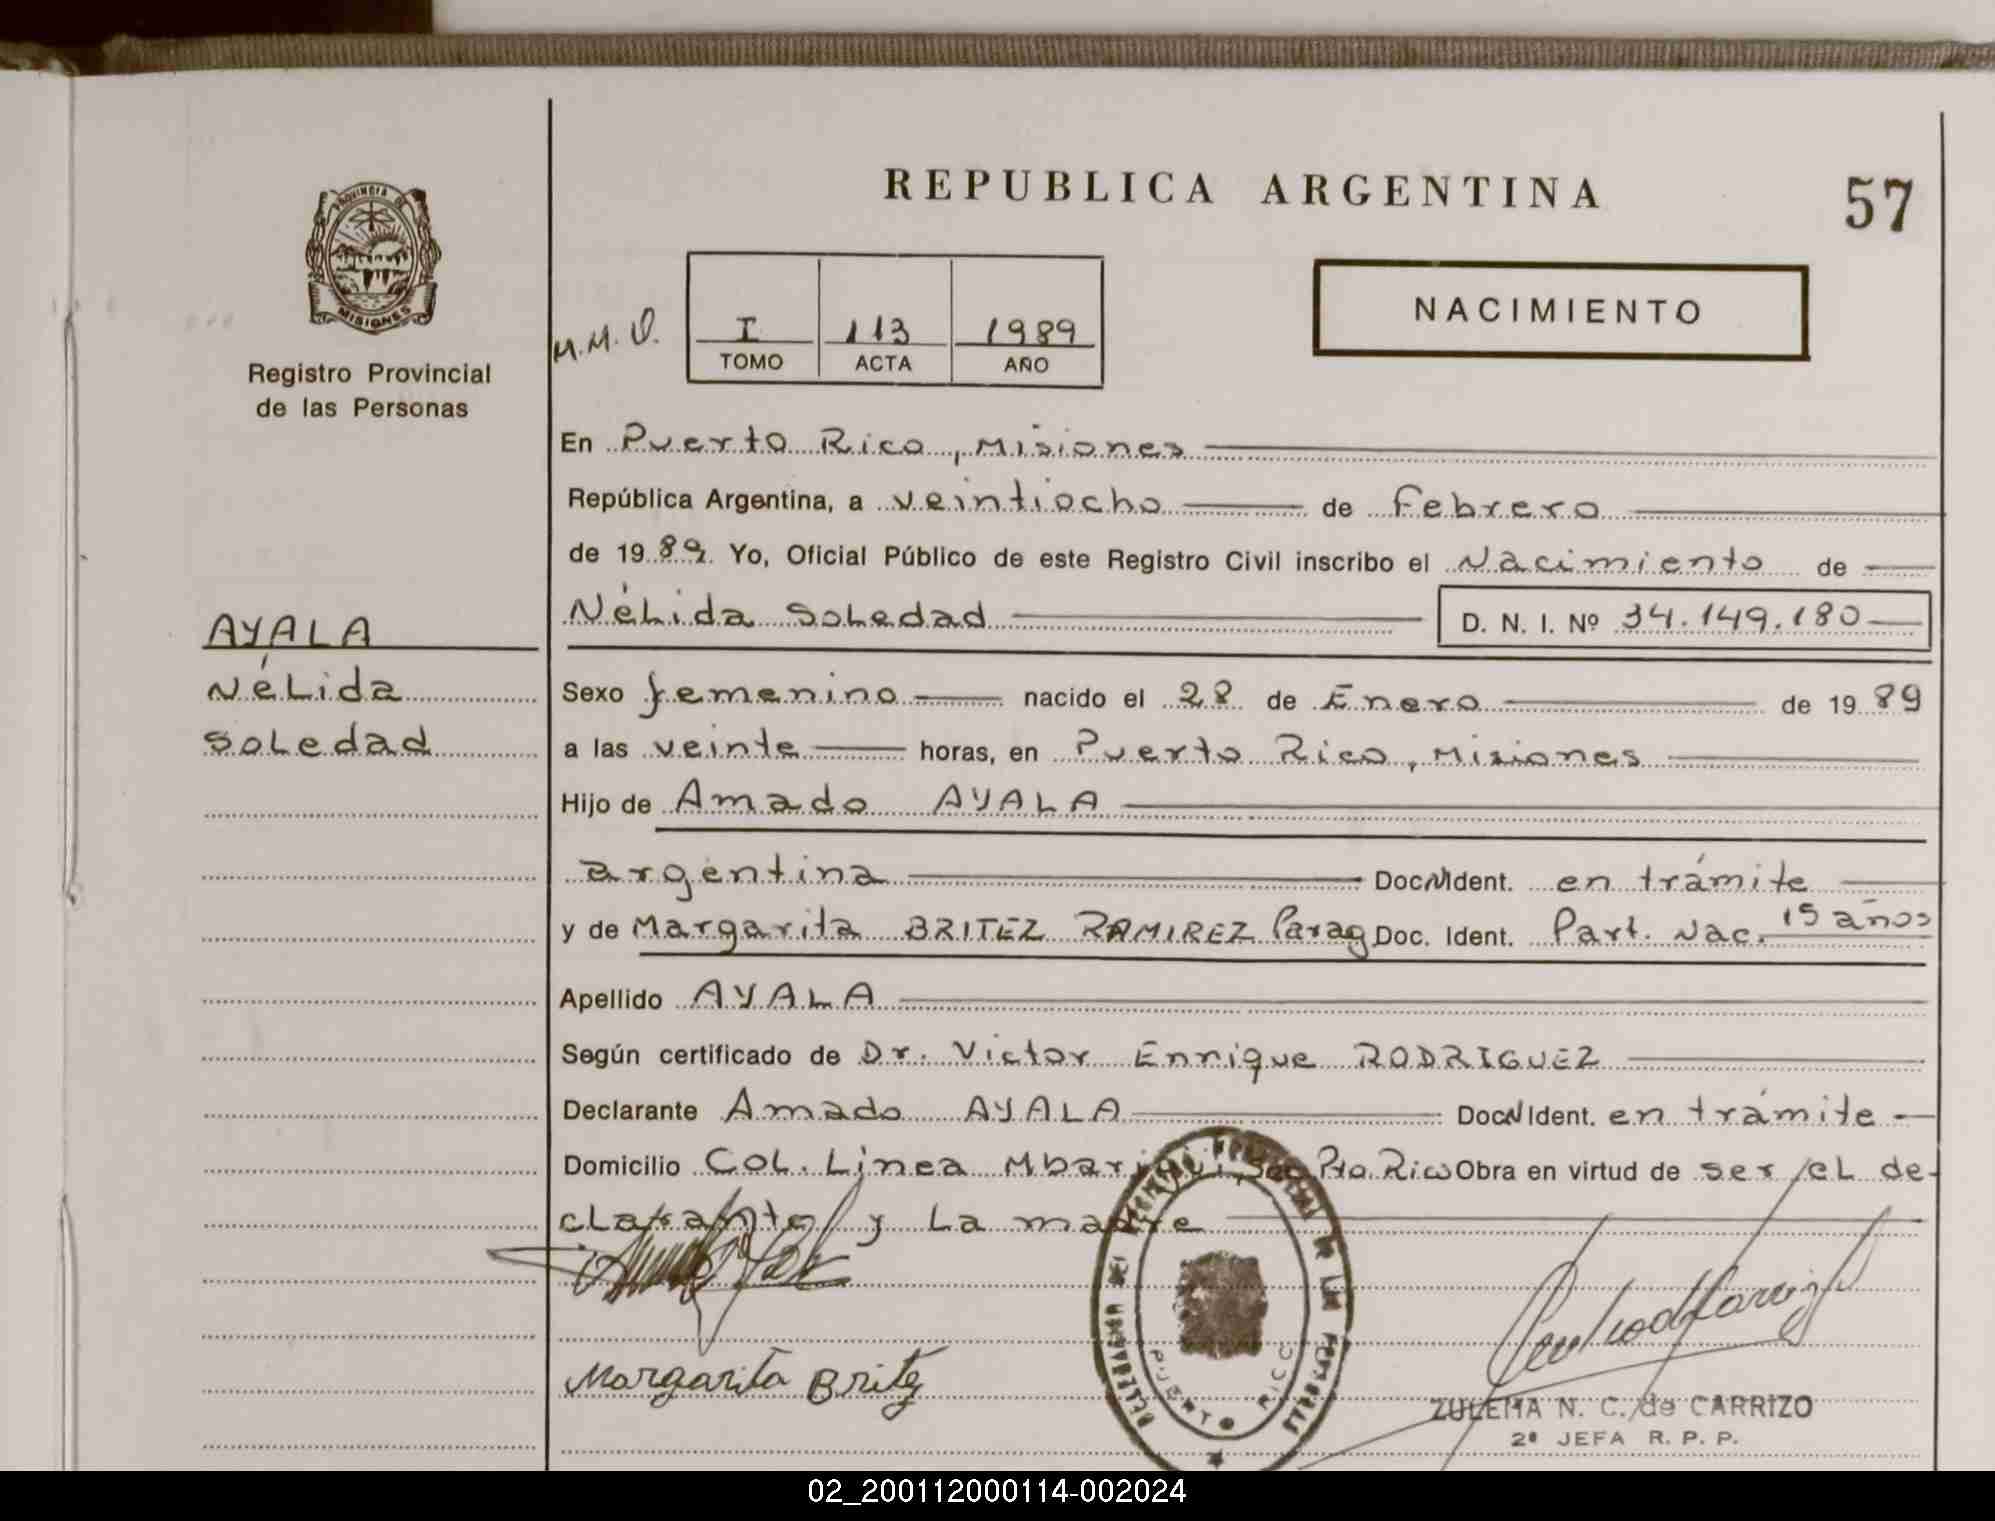 REPUBLICA ARGENTINA
57
PROVINCIA DE
MISIONES
Registro Provincial
de las Personas
M.M.O.
I 113 1989
TOMO ACTA AÑO
NACIMIENTO
En Puerto Rico, Misiones
República Argentina, a veintiocho de Febrero
de 1989. Yo, Oficial Público de este Registro Civil inscribo el Nacimiento de
Nélida Soledad D. N. I. Nº 34.149.180
AYALA
Nélida
Soledad
Sexo femenino nacido el 28 de Enero de 1989
a las veinte horas, en Puerto Rico, Misiones
Hijo de Amado AYALA
argentina Doc. Ident. en trámite
y de Margarita BRITEZ RAMIREZ Parag Doc. Ident. Part. Nac. 15 años
Apellido AYALA
Según certificado de Dr. Victor Enrique RODRIGUEZ
Declarante Amado AYALA Doc. Ident. en trámite
Domicilio Col. Linea Pto. Rico Obra en virtud de ser el de-
clarante y la madre
Margarita Britez
PUERTO RICO
ZULEMA N. C. de CARRIZO
2ª JEFA R. P. P.
02_200112000114-002024